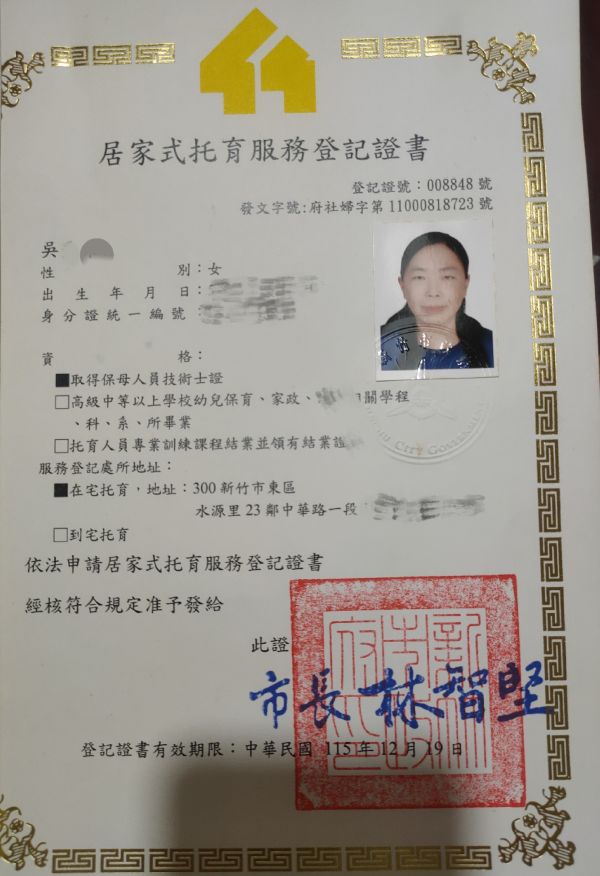 居家式托育服務登記證書
登記證號：008848 號
發文字號:府社婦字第 11000818723 號
吳
性別：女
出生年月日：
身分證統一編號：
資格：
■取得保母人員技術士證
□高級中等以上學校幼兒保育、家政、關學程
、科、系、所畢業
□托育人員專業訓練課程結業並領有結業證
服務登記處所地址：
■在宅托育，地址：300 新竹市東區
水源里 23 鄰中華路一段
□到宅托育
依法申請居家式托育服務登記證書
經核符合規定准予發給
此證
新竹市政府印
市長 林智堅
登記證書有效期限：中華民國 115 年 12 月 19 日
CITY GOVERNMENT